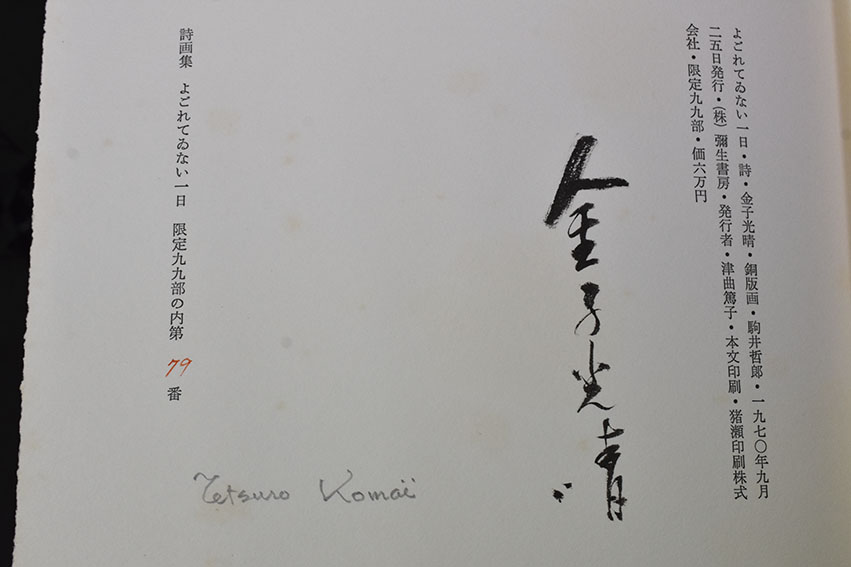 よごれてゐない一日・詩・金子光晴・銅版画・駒井哲郎・一九七〇年九月
二五日発行・(株)彌生書房・発行者・津曲篤子・本文印刷・猪瀬印刷株式
会社・限定九九部・価六万円
金子光晴
詩画集 よごれてゐない一日 限定九九部の内第 79 番
Tetsuro Komaï